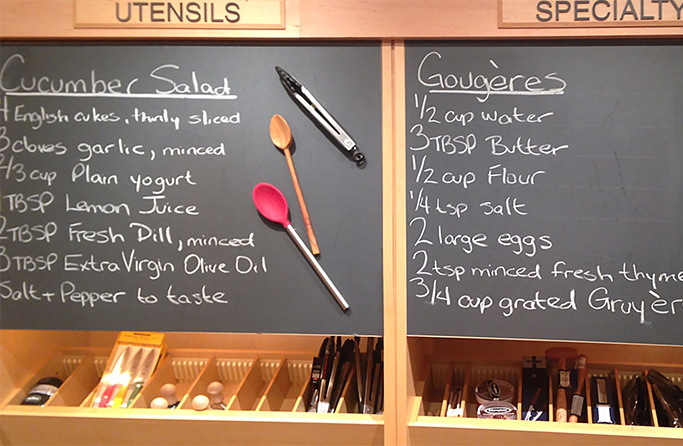 UTENSILS
SPECIALTY
Cucumber Salad
4 English cukes, thinly sliced
3 cloves garlic, minced
2/3 cup Plain yogurt
1 TBSP Lemon Juice
2 TBSP Fresh Dill, minced
3 TBSP Extra Virgin Olive Oil
Salt + Pepper to taste
Gougères
1/2 cup water
3 TBSP Butter
1/2 cup Flour
1/4 tsp salt
2 large eggs
2 tsp minced fresh thyme
3/4 cup grated Gruyèr